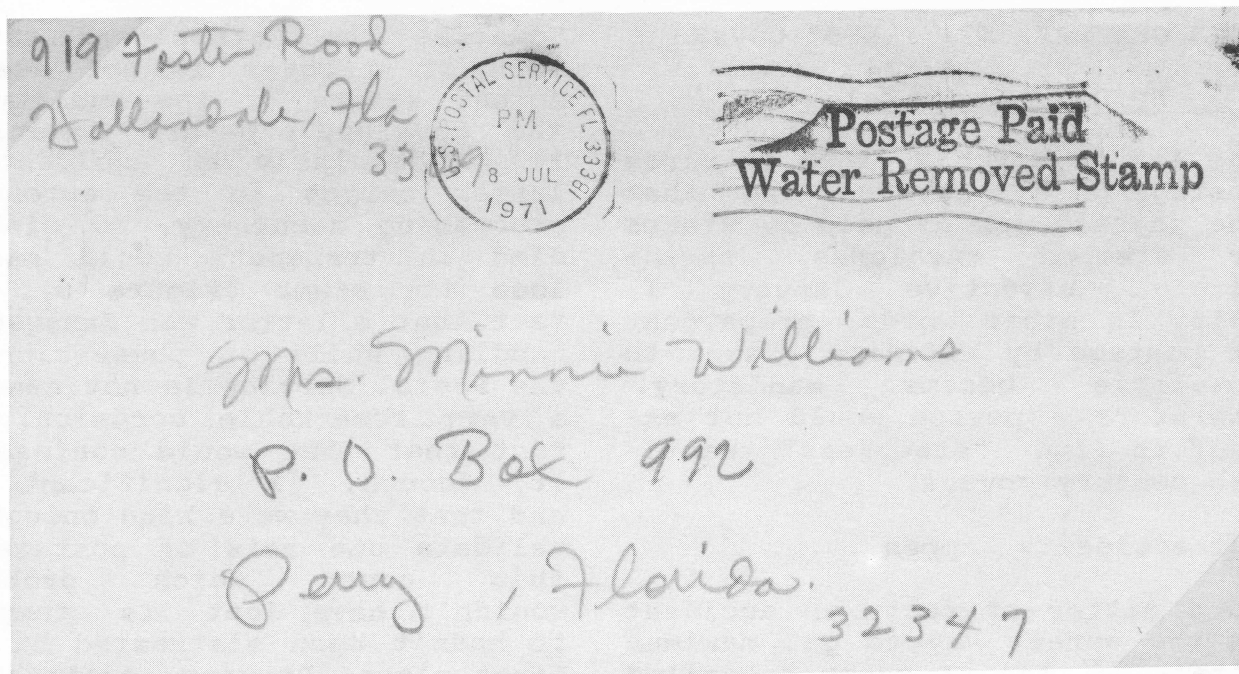 919 Foster Road
Hallandale, Fla
33009
U.S. POSTAL SERVICE FL 333B1
PM
8 JUL
1971
Postage Paid
Water Removed Stamp
Mrs. Minnie Williams
P. O. Box 992
Perry, Florida.
32347